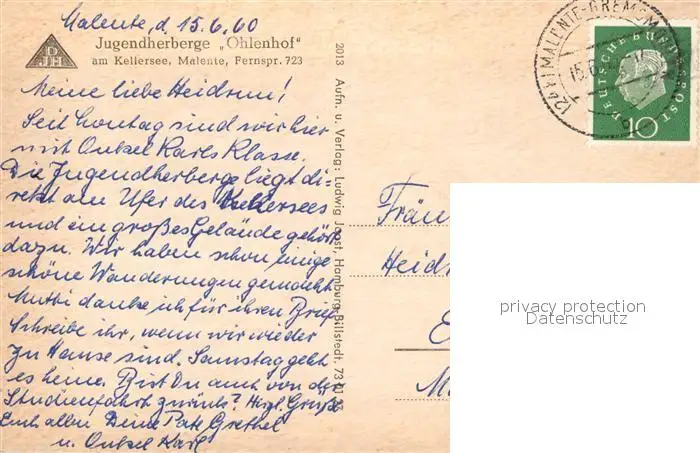 Malente, d. 15.6.60
DJH
Jugendherberge „Ohlenhof“
am Kellersee, Malente, Fernspr. 723
Meine liebe Heidrun!
Seit Sonntag sind wir hier
mit Onkel Karls Klasse.
Die Jugendherberge liegt di=
rekt am Ufer des Kellersees
und ein großes Gelände gehört
dazu. Wir haben schon einige
schöne Wanderungen gemacht.
Mutti danke ich für ihren Brief.
Schreibe ihr, wenn wir wieder
zu Hause sind. Samstag geht
es heim. Bist Du auch von der
Studienfahrt zurück? Herzl. Grüße
Euch allen Deine Pate Grethel
u. Onkel Karl
2013 Aufn. u. Verlag: Ludwig Joost, Hamburg-Billstedt,
MALENTE-GREMSMÜHLEN
DEUTSCHE BUNDESPOST
10
Fräu
Heidr
privacy protection
Datenschutz